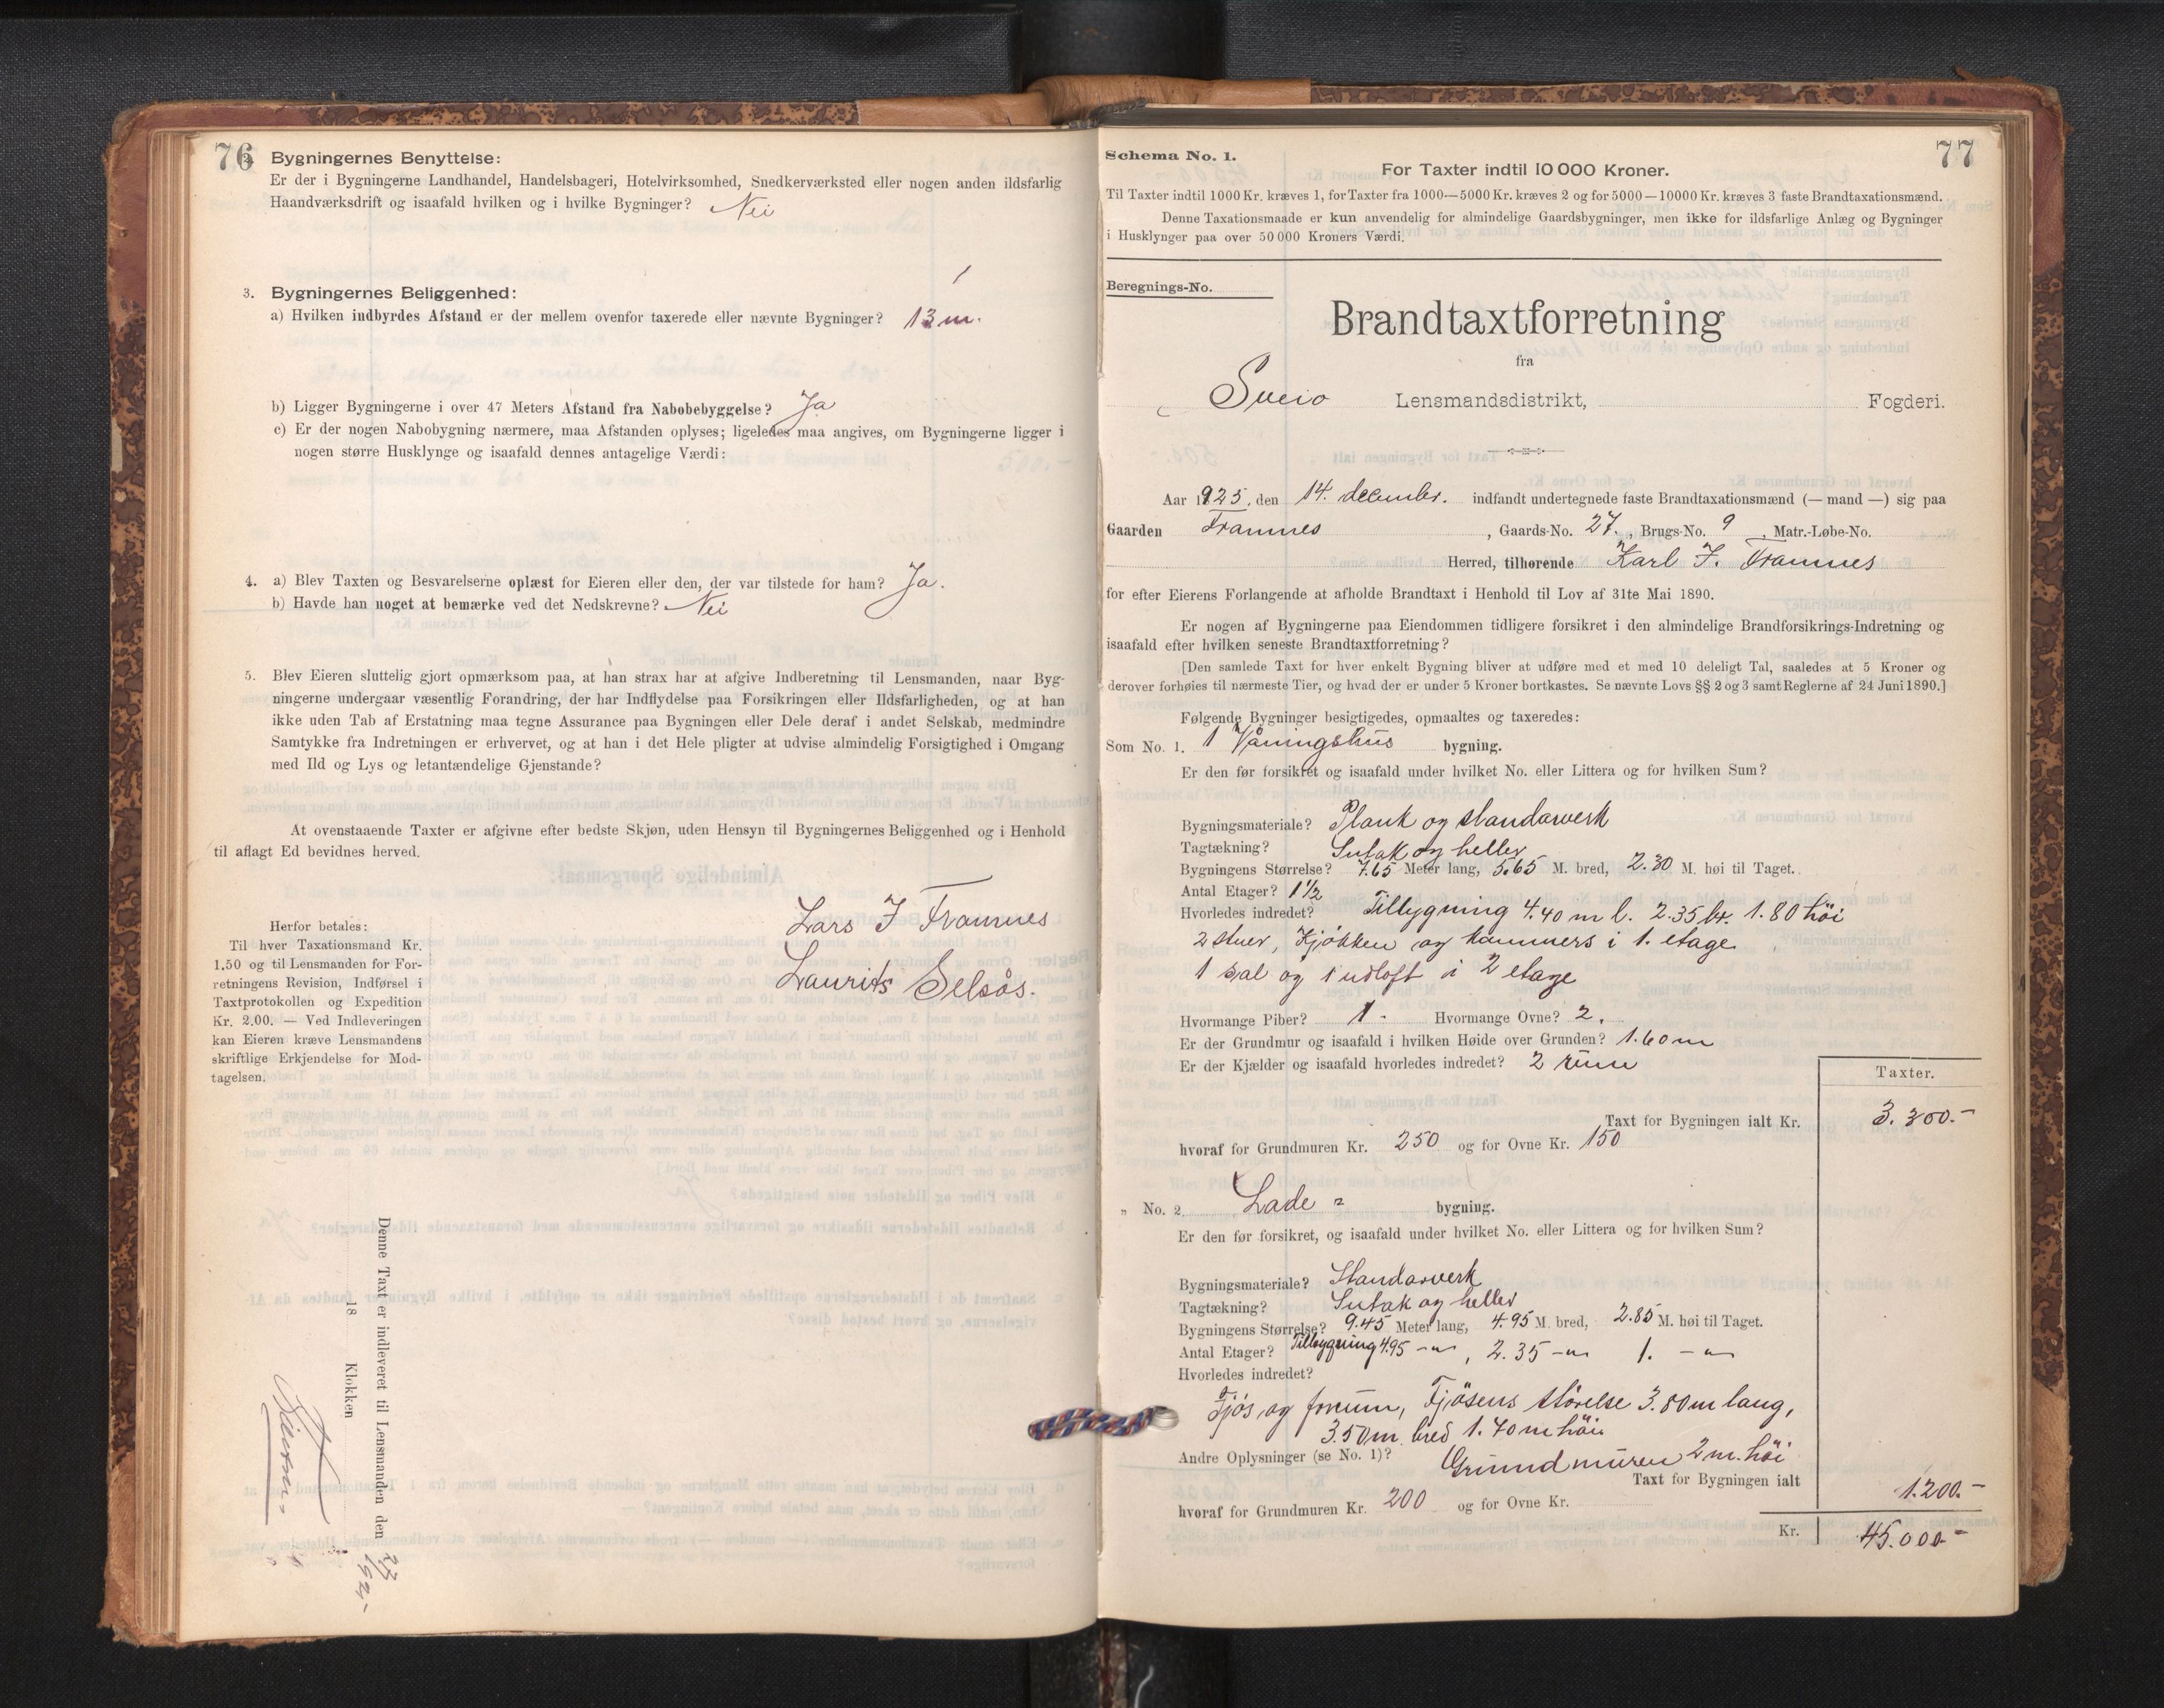 76
2. Bygningernes Benyttelse:
Er der i Bygningerne Landhandel, Handelsbageri, Hotelvirksomhed, Snedkerværksted eller nogen anden ildsfarlig
Haandværksdrift og isaafald hvilken og i hvilke Bygninger? Nei
3. Bygningernes Beliggenhed:
a) Hvilken indbyrdes Afstand er der mellem ovenfor taxerede eller nævnte Bygninger? 13 m.
b) Ligger Bygningerne i over 47 Meters Afstand fra Nabobebyggelse? Ja
c) Er der nogen Nabobygning nærmere, maa Afstanden oplyses; ligeledes maa angives, om Bygningerne ligger i
nogen større Husklynge og isaafald dennes antagelige Værdi:
4. a) Blev Taxten og Besvarelserne oplæst for Eieren eller den, der var tilstede for ham? Ja.
b) Havde han noget at bemærke ved det Nedskrevne? Nei
5. Blev Eieren sluttelig gjort opmærksom paa, at han strax har at afgive Indberetning til Lensmanden, naar Byg-
ningerne undergaar væsentlig Forandring, der har Indflydelse paa Forsikringen eller Ildsfarligheden, og at han
ikke uden Tab af Erstatning maa tegne Assurance paa Bygningen eller Dele deraf i andet Selskab, medmindre
Samtykke fra Indretningen er erhvervet, og at han i det Hele pligter at udvise almindelig Forsigtighed i Omgang
med Ild og Lys og letantændelige Gjenstande?
At ovenstaaende Taxter er afgivne efter bedste Skjøn, uden Hensyn til Bygningernes Beliggenhed og i Henhold
til aflagt Ed bevidnes herved.
Lars J Framnes
Laurits Selsås.
Herfor betales:
Til hver Taxationsmand Kr.
1,50 og til Lensmanden for For-
retningens Revision, Indførsel i
Taxtprotokollen og Expedition
Kr. 2.00. — Ved Indleveringen
kan Eieren kræve Lensmandens
skriftlige Erkjendelse for Mod-
tagelsen.
Denne Taxt er indleveret til Lensmanden den
18 Klokken
77
Schema No. 1.
For Taxter indtil 10 000 Kroner.
Til Taxter indtil 1000 Kr. kræves 1, for Taxter fra 1000—5000 Kr. kræves 2 og for 5000—10000 Kr. kræves 3 faste Brandtaxationsmænd.
Denne Taxationsmaade er kun anvendelig for almindelige Gaardsbygninger, men ikke for ildsfarlige Anlæg og Bygninger
i Husklynger paa over 50 000 Kroners Værdi.
Beregnings-No.
Brandtaxtforretning
fra
Sveio Lensmandsdistrikt, Fogderi.
Aar 1925, den 14. december. indfandt undertegnede faste Brandtaxationsmænd (— mand —) sig paa
Gaarden Framnes, Gaards-No. 27., Brugs-No. 9, Matr.-Løbe-No.
Herred, tilhørende Karl J. Framnes
for efter Eierens Forlangende at afholde Brandtaxt i Henhold til Lov af 31te Mai 1890.
Er nogen af Bygningerne paa Eiendommen tidligere forsikret i den almindelige Brandforsikrings-Indretning og
isaafald efter hvilken seneste Brandtaxtforretning?
[Den samlede Taxt for hver enkelt Bygning bliver at udføre med et med 10 deleligt Tal, saaledes at 5 Kroner og
derover forhøies til nærmeste Tier, og hvad der er under 5 Kroner bortkastes. Se nævnte Lovs §§ 2 og 3 samt Reglerne af 24 Juni 1890.]
Følgende Bygninger besigtigedes, opmaaltes og taxeredes:
Som No. 1. 1 Våningshus bygning.
Er den før forsikret og isaafald under hvilket No. eller Littera og for hvilken Sum?
Bygningsmateriale? Plank og standarverk
Tagtækning? Sutak og heller
Bygningens Størrelse? 7.65 Meter lang, 5.65 M. bred, 2.30 M. høi til Taget.
Antal Etager? 1½
Hvorledes indredet? Tilbygning 4.40 m l. 2.35 br. 1.80 höi
2 stuer, Kjökken og kammers i 1. etage
1 sal og 1 udloft i 2 etage
Hvormange Piber? 1. Hvormange Ovne? 2.
Er der Grundmur og isaafald i hvilken Høide over Grunden? 1.60 m
Er der Kjælder og isaafald hvorledes indredet? 2 rum
Taxter.
Taxt for Bygningen ialt Kr. 3.300.-
hvoraf for Grundmuren Kr. 250 og for Ovne Kr. 150
" No. 2. Lade = bygning.
Er den før forsikret, og isaafald under hvilket No. eller Littera og for hvilken Sum?
Bygningsmateriale? Standarverk
Tagtækning? Sutak og heller
Bygningens Størrelse? 9.45 Meter lang, 4.95 M. bred, 2.85 M. høi til Taget.
Antal Etager? Tilbygning 4.95 -"-, 2.35 -"- 1. -"-
Hvorledes indredet?
Fjös og forum, Fjösens störelse 3.80 m lang,
3.50 m. bred 1.70 m höi.
Andre Oplysninger (se No. 1)? Grundmuren 2 m. höi
Taxt for Bygningen ialt 1.200.-
hvoraf for Grundmuren Kr. 200 og for Ovne Kr.
Kr. 45.000-